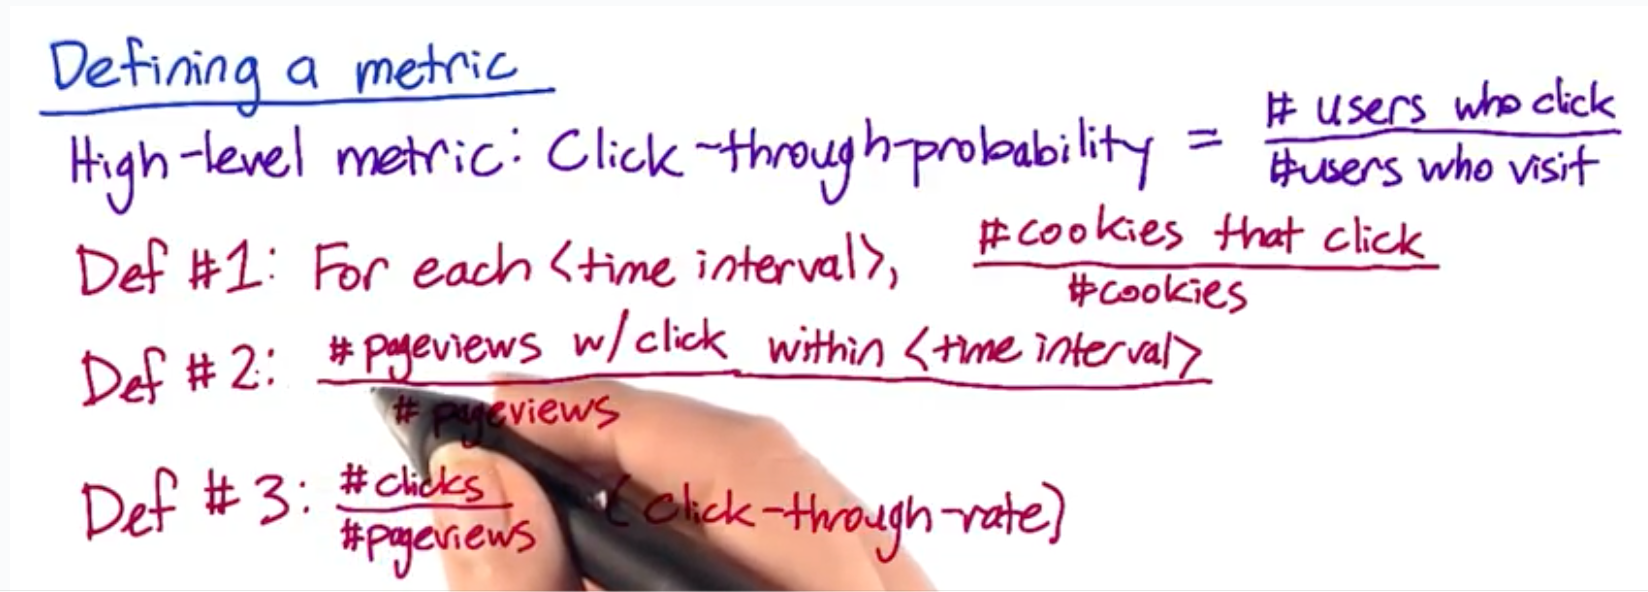 Defining a metric
High-level metric: Click-through-probability = # users who click
#users who visit
Def #1: For each <time interval>, #cookies that click
#cookies
Def #2: #pageviews w/click within <time interval>
# pageviews
Def #3: #clicks
#pageviews
(click-through-rate)